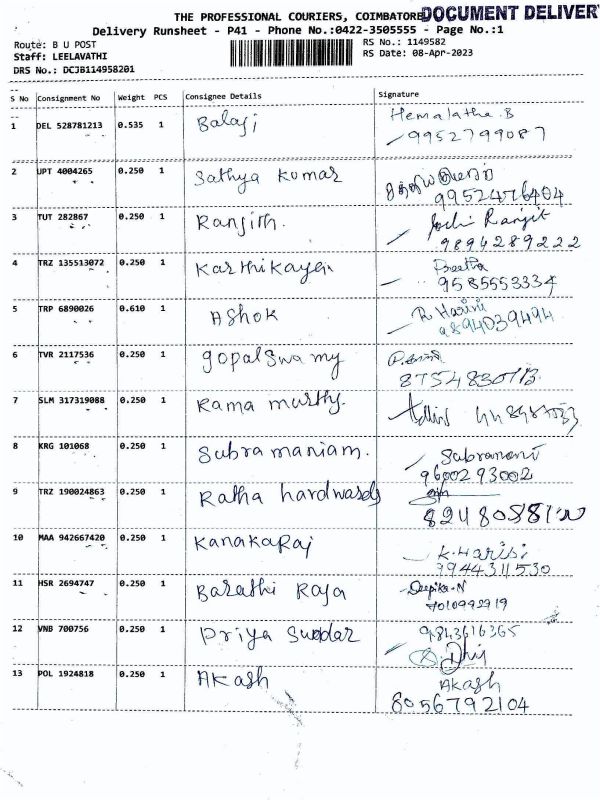 THE PROFESSIONAL COURIERS, COIMBATORE
DOCUMENT DELIVER
Delivery Runsheet - P41 - Phone No.:0422-3505555 - Page No.:1
Route: B U POST
RS No.: 1149582
Staff: LEELAVATHI
RS Date: 08-Apr-2023
DRS No.: DCJB114958201
S No Consignment No Weight PCS Consignee Details Signature
1 DEL 528781213 0.535 1 Balaji Hemalatha.B
9952799087
2 UPT 4004265 0.250 1 Sathya Kumar
9952476404
3 TUT 282867 0.250 1 Ranjith. Ranjit
9894289222
4 TRZ 135513072 0.250 1 Karthikayen Preetha
9585553334
5 TRP 6890026 0.610 1 Ashok R Harini
9894039494
6 TVR 2117536 0.250 1 gopalswamy
8754830713
7 SLM 317319088 0.250 1 Rama murthy.
8 KRG 101068 0.250 1 Subramaniam. Subramani
9600293002
9 TRZ 190024863 0.250 1 Ratha hardwards
10 MAA 942667420 0.250 1 Kanakaraj K.Harisi
9944311530
11 HSR 2694747 0.250 1 Barathi Raja Deepika.N
7010992919
12 VNB 700756 0.250 1 Priya Sundar 9843616365
13 POL 1924818 0.250 1 Akash Akash
8056792104